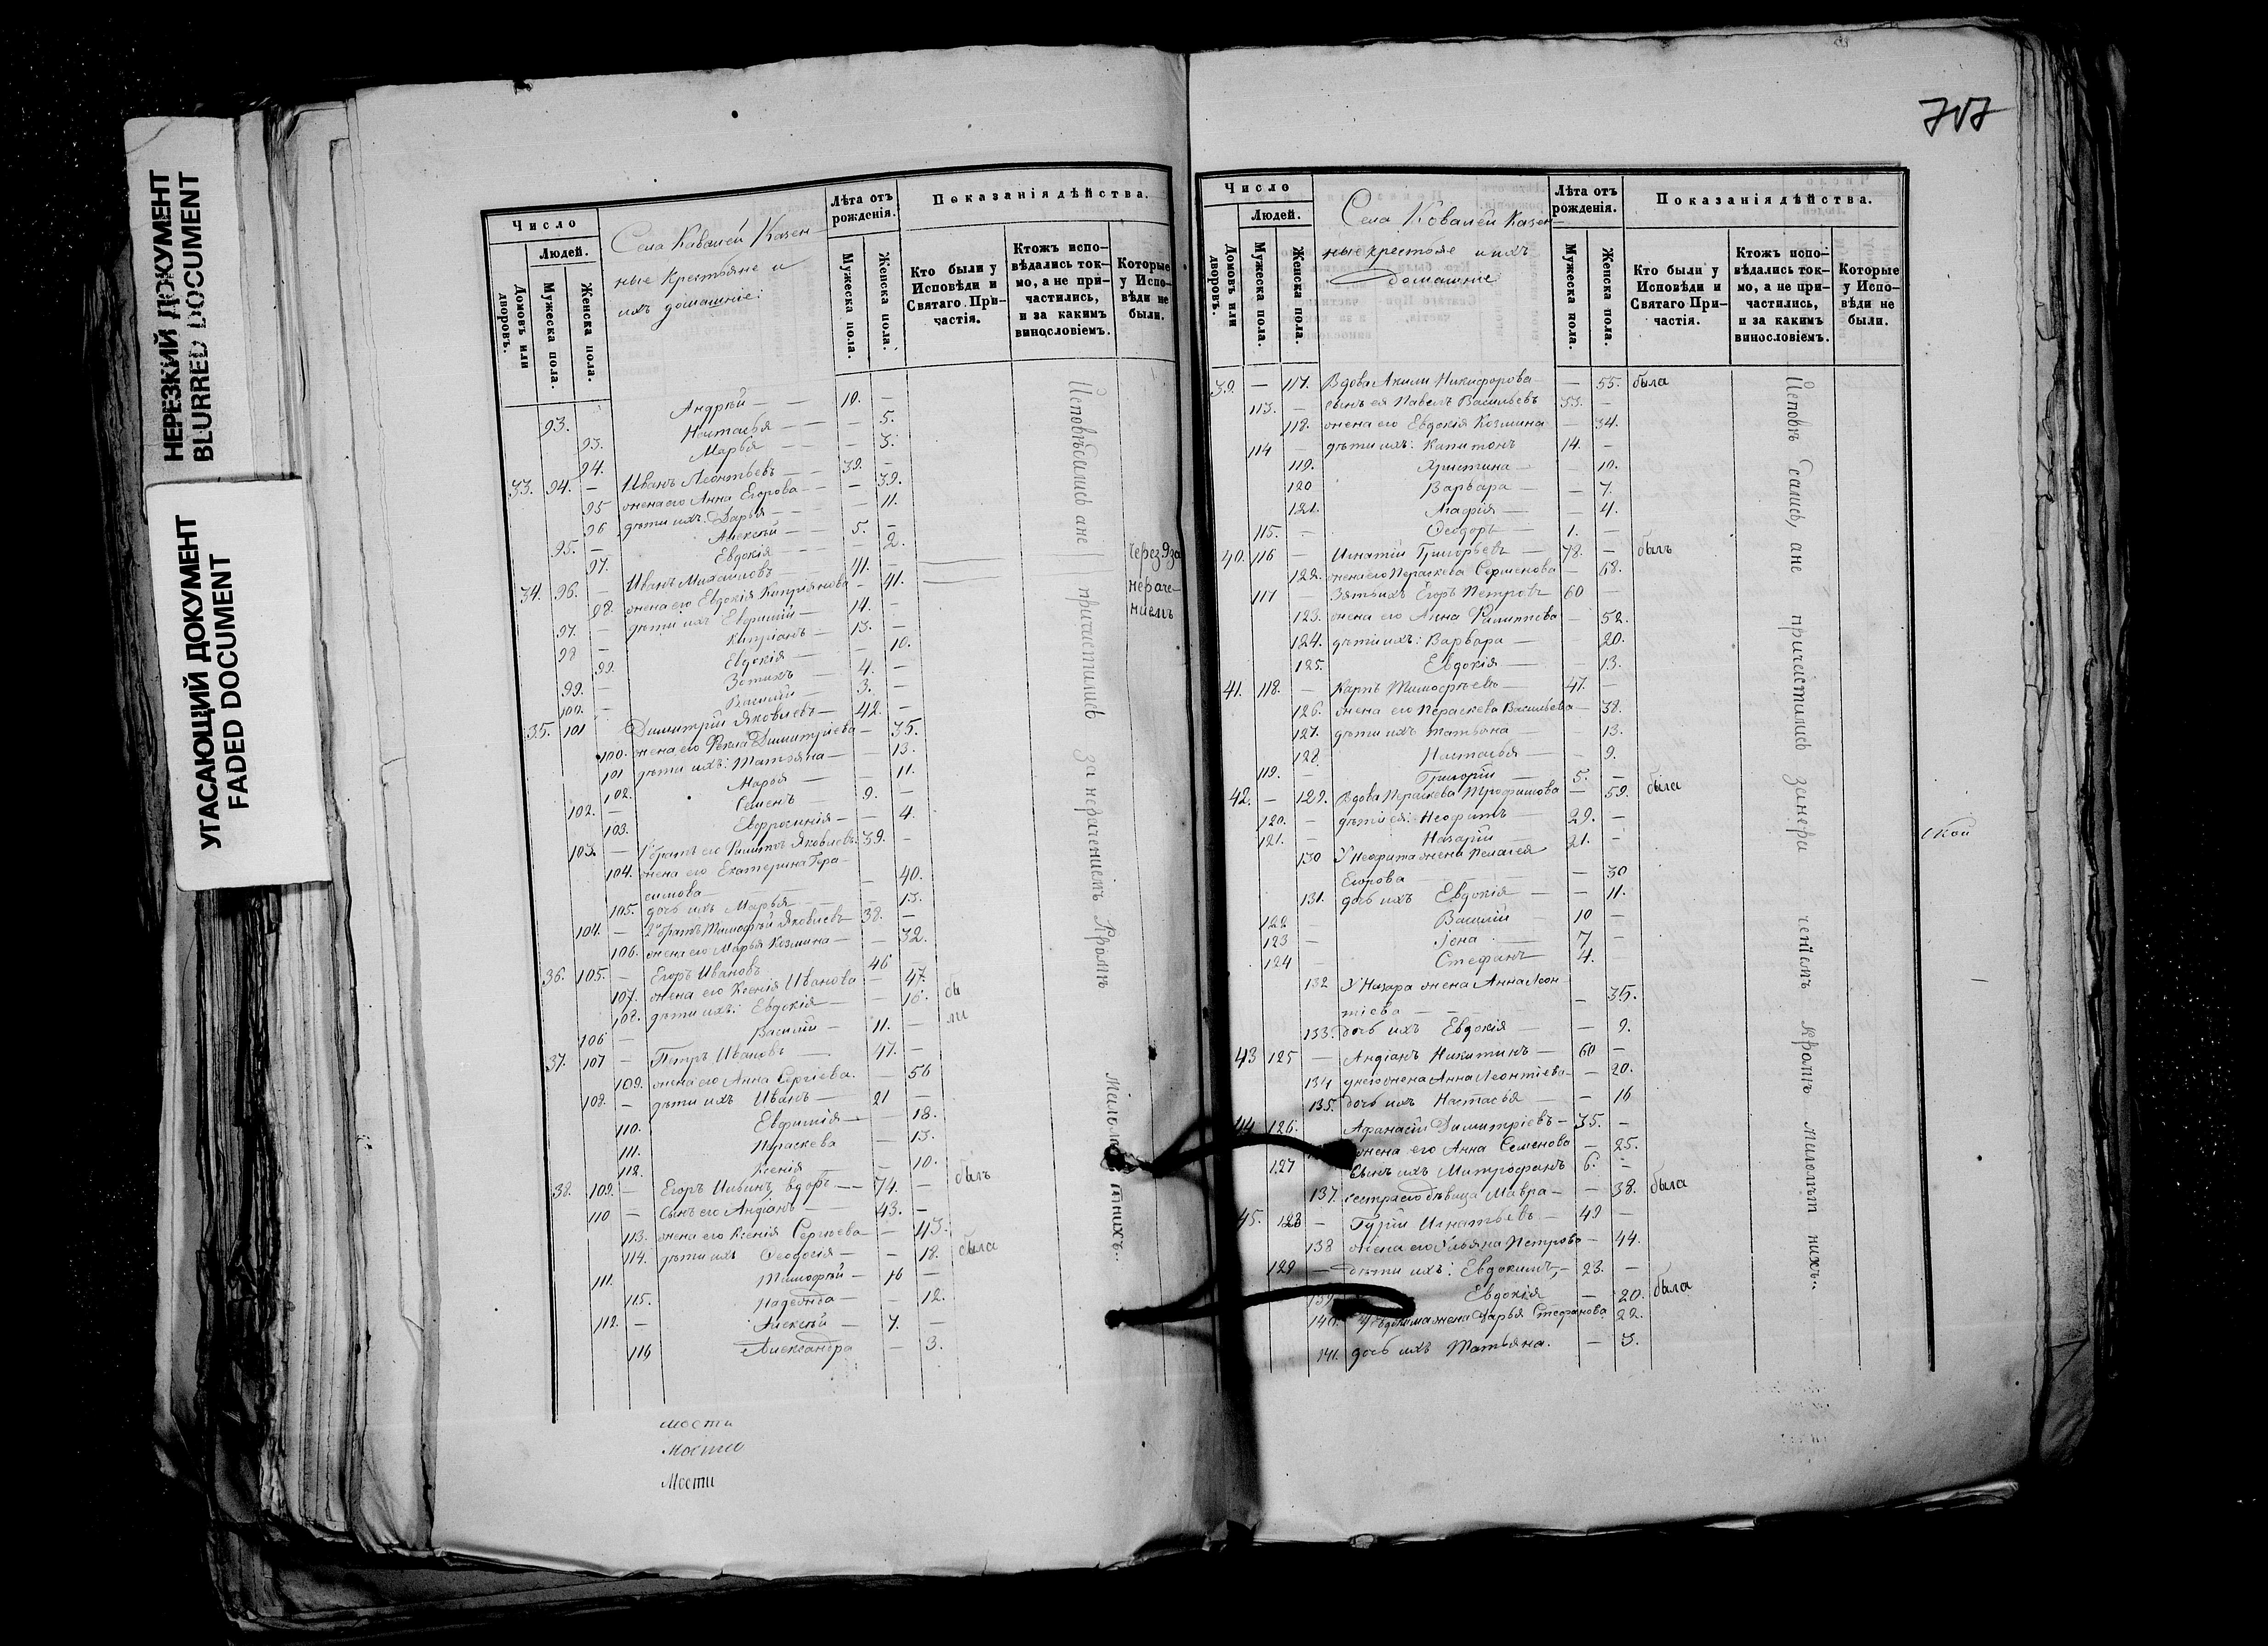 НЕРЕЗКИЙ ДОКУМЕНТ
BLURRED DOCUMENT
УГАСАЮЩИЙ ДОКУМЕНТ
FADED DOCUMENT
Число
Людей.
Домовъ или дворовъ.
Мужеска пола.
Женска пола.
Села Ковалей Казен-
ные Крестьяне и
ихъ домашніе:
Лѣта отъ рожденія.
Мужеска пола.
Женска пола.
Показанія дѣйства.
Кто были у Исповѣди и Святаго Причастія.
Ктожъ исповѣдались токмо, а не причастились, и за какимъ винословіемъ.
Которые у Исповѣди не были.
93. Андрей — 10. —
93. Настасья — — 5.
94. Марья — — 3.
33. 94. — Иванъ Леонтьевъ — 39. —
95 жена его Анна Егорова — — 39.
96 дѣти ихъ: Дарья — — 11.
95. — Алексѣй — 5. —
97. Евдокія — — 2.
34. 96. — Иванъ Михайловъ — 41. —
98. жена его Евдокія Кипріянова — 41.
97. — дѣти ихъ Евфимій — 14. —
98 — Кипріанъ — 13. —
99. Евдокія — — 10.
99. — Зотикъ — 4. —
100. — Василій — 3. —
35. 101 Димитрій Яковлевъ — 42. —
100. жена его Фекла Димитріева — 35.
101 дѣти ихъ: Татьяна — — 13.
102. Марья — — 11.
102. — Семенъ — 9. —
103. Евфросинія — — 4.
103. — 1й братъ его Филиппъ Яковлевъ. 39. —
104. жена его Екатерина Гера-
симова — — 40.
105. дочь ихъ Марья — — 13.
104. — 2й братъ Тимофей Яковлевъ — 38. —
106. жена его Марья Козмина — — 32.
36. 105. — Егоръ Ивановъ 46 —
107. жена его Ксенія Иванова — 47.
108. дѣти ихъ: Евдокія — — 16. бы
106 — Василій — 11. — ли
37. 107 — Петръ Ивановъ — 47. —
109. жена его Анна Сергіева. — 56
108. — дѣти ихъ Иванъ — 21 —
110. Евфимія — — 18.
111. Параскева — 13.
112. Ксенія — 10.
38. 109. — Егоръ Ильинъ, вдовъ — 74. — былъ
110 — сынъ его Андіанъ — 43. —
113. жена его Ксенія Сергіева — 43.
114. дѣти ихъ Феодосія — — 18. была
111. Тимофѣй — 16 —
115. Надежда — — 12.
112. — Алексѣй — 7. —
116 Александра — 3.
Исповѣдались, а не причастились за нераченіемъ Кромѣ Малолѣтнихъ.
нераче-
ніемъ
мости
Мости
707
Число
Людей.
Домовъ или дворовъ.
Мужеска пола.
Женска пола.
Села Ковалей Казен-
ные крестьяне и ихъ
домашніе
Лѣта отъ рожденія.
Мужеска пола.
Женска пола.
Показанія дѣйства.
Кто были у Исповѣди и Святаго Причастія.
Ктожъ исповѣдались токмо, а не причастились, и за какимъ винословіемъ.
Которые у Исповѣди не были.
39. — 117. Вдова Акили Никифорова — 55. была
113. — сынъ ея Павелъ Васильевъ 33. —
118. жена его Евдокія Козмина — 34.
114 — дѣти ихъ: Капитонъ 14. —
119. Христина — — 10.
120 Варвара — — 7.
121. Мафія — — 4.
115. — Феодоръ — 1. —
40. 116 — Игнатій Григорьевъ — 78. — былъ
122. жена его Параскева Семенова — 68.
117 — Зять ихъ Егоръ Петровъ 60 —
123. жена его Анна Филиппова — 52.
124. дѣти ихъ: Варвара — — 20.
125. Евдокія — — 13.
41. 118. — Карпъ Тимофѣевъ — 47. —
126. жена его Параскева Васильева — 38.
127. дѣти ихъ Татьяна — — 13.
128. Настасья — — 9.
119. — Григорій — 5. —
42. — 129. Вдова Параскева Трофимова — 59. была
120. — дѣти ея: Неофитъ — 29. —
121. — Назарій — 21. —
130 У Неофита жена Пелагея
Егорова — — 30
131. дочь ихъ Евдокія — — 11.
122 — Василій — 10 —
123 — Іона — 7 —
124 — Стефанъ 4. —
132 У Назара жена Анна Леон-
тіева — — 35.
133. дочь ихъ Евдокія — — 9.
43 125 — Андіанъ Никитинъ — 60 —
134 у него жена Анна Леонтіева — 20.
135. дочь ихъ Настасья — — 16
44 126. Афанасій Димитріевъ — 35. —
жена его Анна Семенова — 25.
127 сынъ ихъ Митрофанъ 6. —
137. сестра его дѣвица Мавра — — 38. была
45. 128 — Гурій Игнатьевъ — 49 —
138 жена его Ульяна Петрова — 44.
129 — дѣти ихъ: Евдокимъ, — 23. —
139 Евдокія — 20. была
140. У Евдокима жена Дарья Стефанова 22.
141. дочь ихъ Татьяна. — 3.
Исповѣдались, а не причастились за нераченіемъ Кромѣ Малолѣтнихъ.
ской